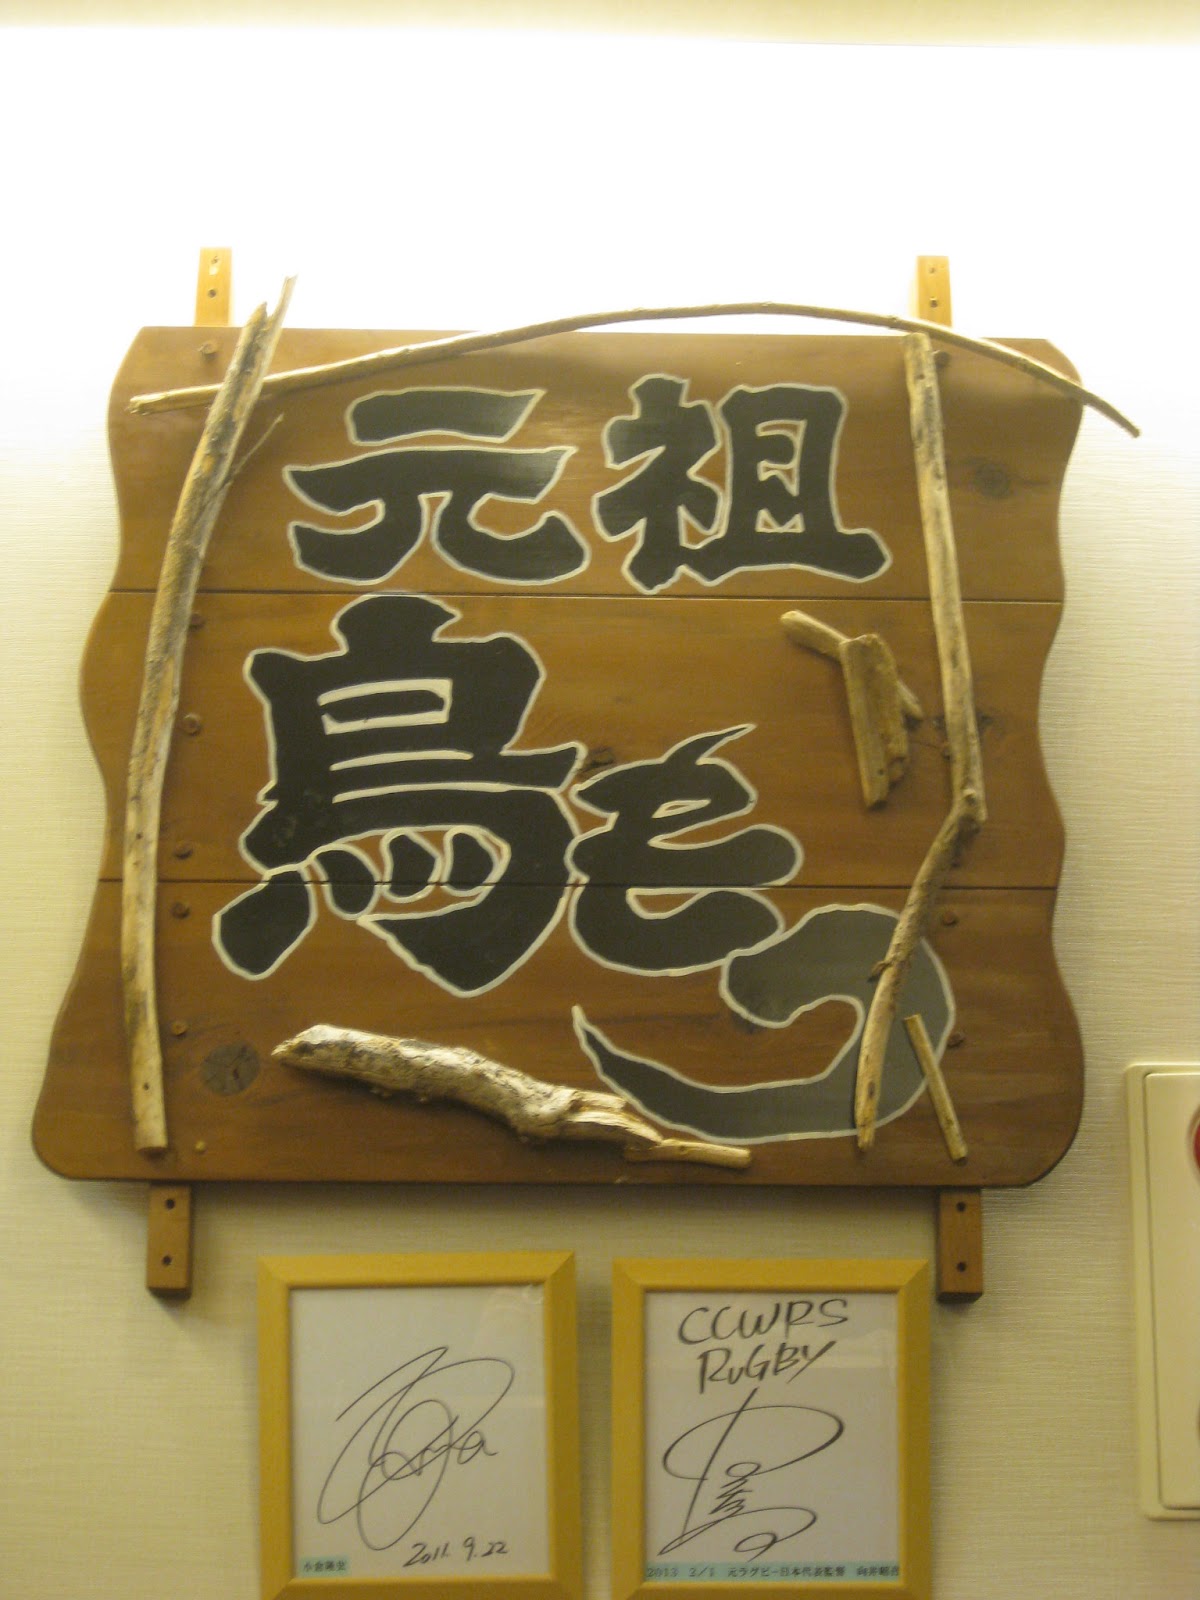 元祖
鳥もつ
CCWRS
RUGBY
2011.9.22
2013 2/1 元ラグビー日本代表監督 向井昭吾